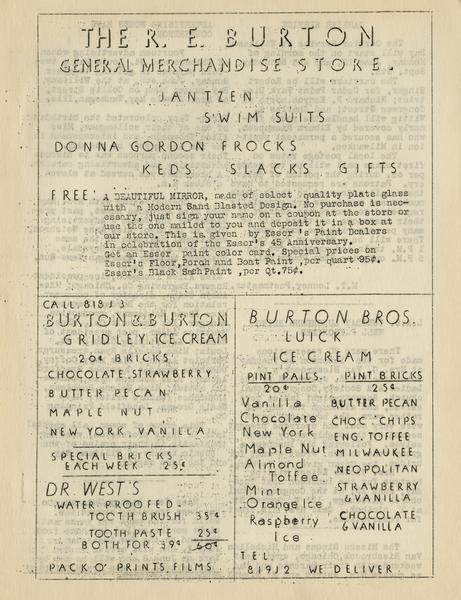 THE R. E. BURTON
GENERAL MERCHANDISE STORE.
JANTZEN
SWIM SUITS
DONNA GORDON FROCKS
KEDS SLACKS GIFTS
FREE! A BEAUTIFUL MIRROR, made of select quality plate glass
with a Modern Sand Blasted Design. No purchase is nec-
essary, just sign your name on a coupon at the store or
use the one mailed to you and deposit it in a box at
our store. This is given by Essor's Paint Dealers
in celebration of the Essor's 45 Anniversary.
Get an Essor paint color card. Special prices on
Essor's Floor, Porch and Boat Paint, per quart 95¢.
Essor's Black Sash Paint, per Qt. 75¢.
CALL 818J3
BURTON & BURTON
GRIDLEY ICE CREAM
20¢ BRICKS
CHOCOLATE, STRAWBERRY,
BUTTER PECAN
MAPLE NUT
NEW YORK, VANILLA
SPECIAL BRICKS
EACH WEEK 25¢
DR. WEST'S
WATER PROOFED
TOOTH BRUSH 35¢
TOOTH PASTE 25¢
BOTH FOR 39¢ 60¢
PACK O' PRINTS FILMS
BURTON BROS.
LUICK
ICE CREAM
PINT PAILS
20¢
Vanilla
Chocolate
New York
Maple Nut
Almond
Toffee
Mint
Orange Ice
Raspberry
Ice
PINT BRICKS
25¢
BUTTER PECAN
CHOC. CHIPS
ENG. TOFFEE
MILWAUKEE
NEOPOLITAN
STRAWBERRY
& VANILLA
CHOCOLATE
& VANILLA
TEL.
819J2 WE DELIVER